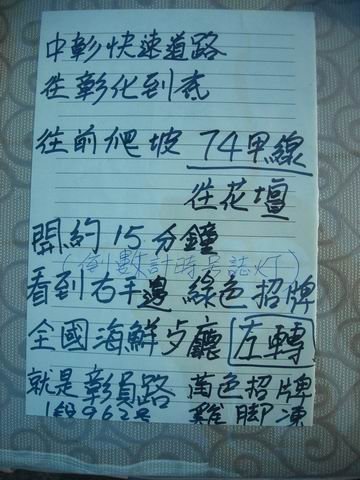 中彰快速道路
往彰化到底
往前爬坡 74甲線
往花壇
開約15分鐘
(倒數計時号誌灯)
看到右手邊 綠色招牌
全國海鮮歺廳 左轉
就是彰員路 黃色招牌
1段962号 雞腳凍